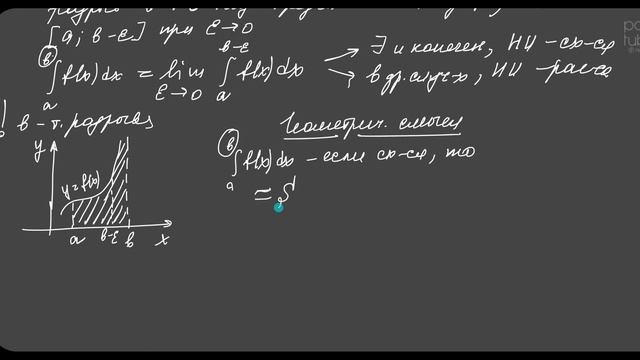 [a; b-ε] при ε→0
b ∫ a f(x)dx = lim ε→0 ∫ a b-ε f(x)dx → ∃ и конечен, НИ - сх-ся
→ в др. случ-х, НИ - расх-ся
! b - т. разрыва
Геометрич. смысл
b ∫ a f(x)dx - если сх-ся, то
= S
y
y=f(x)
a b-ε b x